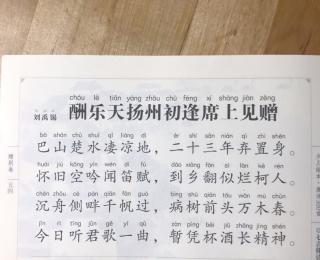 chóu lè tiān yáng zhōu chū féng xí shàng jiàn zèng
刘禹锡 酬乐天扬州初逢席上见赠
bā shān chǔ shuǐ qī liáng dì èr shí sān nián qì zhì shēn
巴山楚水凄凉地，二十三年弃置身。
huái jiù kōng yín wén dí fù dào xiāng fān sì làn kē rén
怀旧空吟闻笛赋，到乡翻似烂柯人。
chén zhōu cè pàn qiān fān guò bìng shù qián tóu wàn mù chūn
沉舟侧畔千帆过，病树前头万木春。
jīn rì tīng jūn gē yì qǔ zàn píng bēi jiǔ zhǎng jīng shén
今日听君歌一曲，暂凭杯酒长精神。